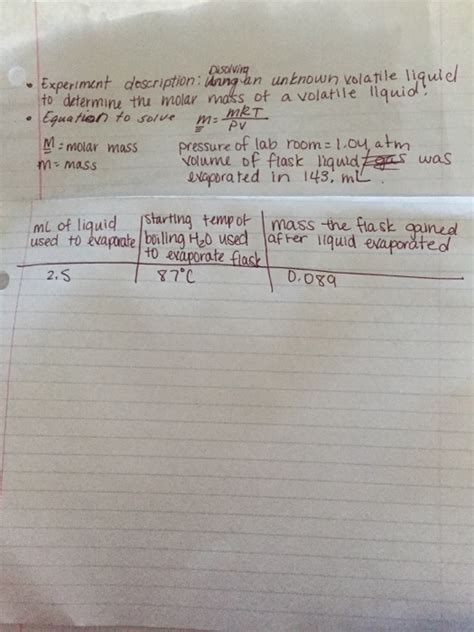 Disolving
• Experiment description: an unknown volatile liquid
to determine the molar mass of a volatile liquid.
• Equation to solve M = mRT
PV
M = molar mass pressure of lab room = 1.04 atm
m = mass volume of flask liquid was
evaporated in 143. mL
mL of liquid starting temp of mass the flask gained
used to evaporate boiling H₂O used after liquid evaporated
to evaporate flask
2.5 87°C 0.089